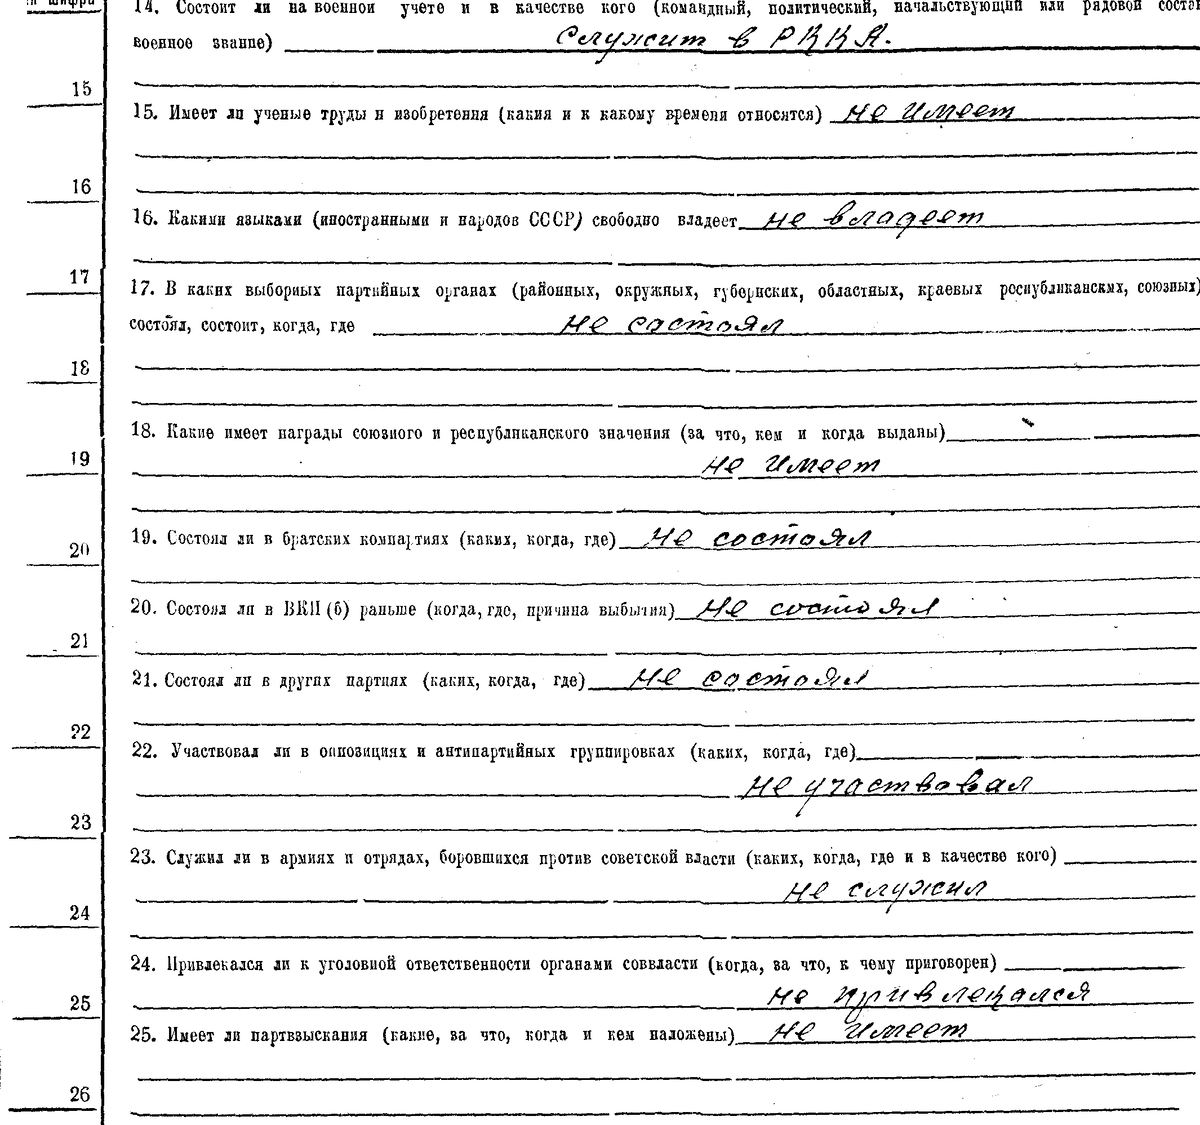 шифра
14. Состоит ли на военном учете и в качестве кого (командный, политический, начальствующий или рядовой состав
военное звание) Служит в РККА.
15
15. Имеет ли ученые труды и изобретения (какия и к какому времени относятся) не имеет
16
16. Какими языками (иностранными и народов СССР) свободно владеет не владеет
17
17. В каких выборных партийных органах (районных, окружных, губернских, областных, краевых республиканских, союзных)
состоял, состоит, когда, где не состоял
18
18. Какие имеет награды союзного и республиканского значения (за что, кем и когда выданы)
19
не имеет
19. Состоял ли в братских компартиях (каких, когда, где) не состоял
20
20. Состоял ли в ВКП(б) раньше (когда, где, причина выбытия) не состоял
21
21. Состоял ли в других партиях (каких, когда, где) не состоял
22
22. Участвовал ли в оппозициях и антипартийных группировках (каких, когда, где)
не участвовал
23
23. Служил ли в армиях и отрядах, боровшихся против советской власти (каких, когда, где и в качестве кого)
не служил
24
24. Привлекался ли к уголовной ответственности органами соввласти (когда, за что, к чему приговорен)
25
не привлекался
25. Имеет ли партвзыскания (какие, за что, когда и кем наложены) не имеет
26